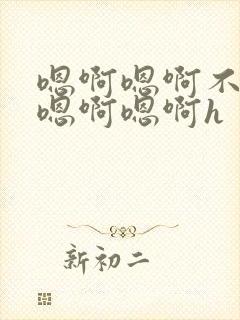 嗯啊嗯啊不
嗯啊嗯啊h
新初二